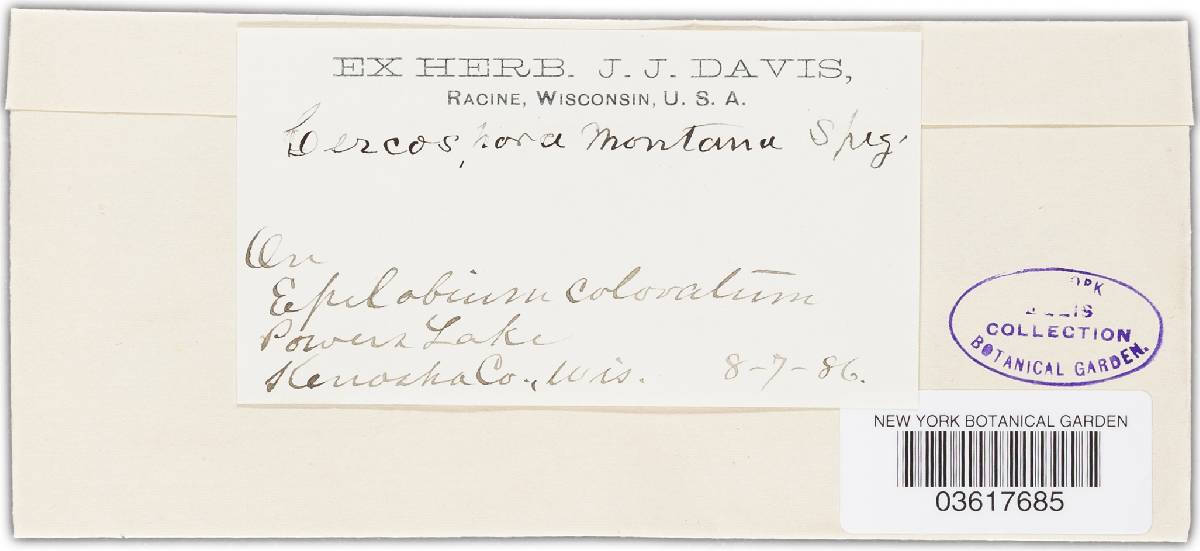 EX HERB. J. J. DAVIS,
RACINE, WISCONSIN, U. S. A.
Cercospora montana Speg.
On
Epilobium coloratum
Powers Lake
Kenosha Co., Wis. 8-7-86.
COLLECTION
BOTANICAL GARDEN.
NEW YORK BOTANICAL GARDEN
03617685